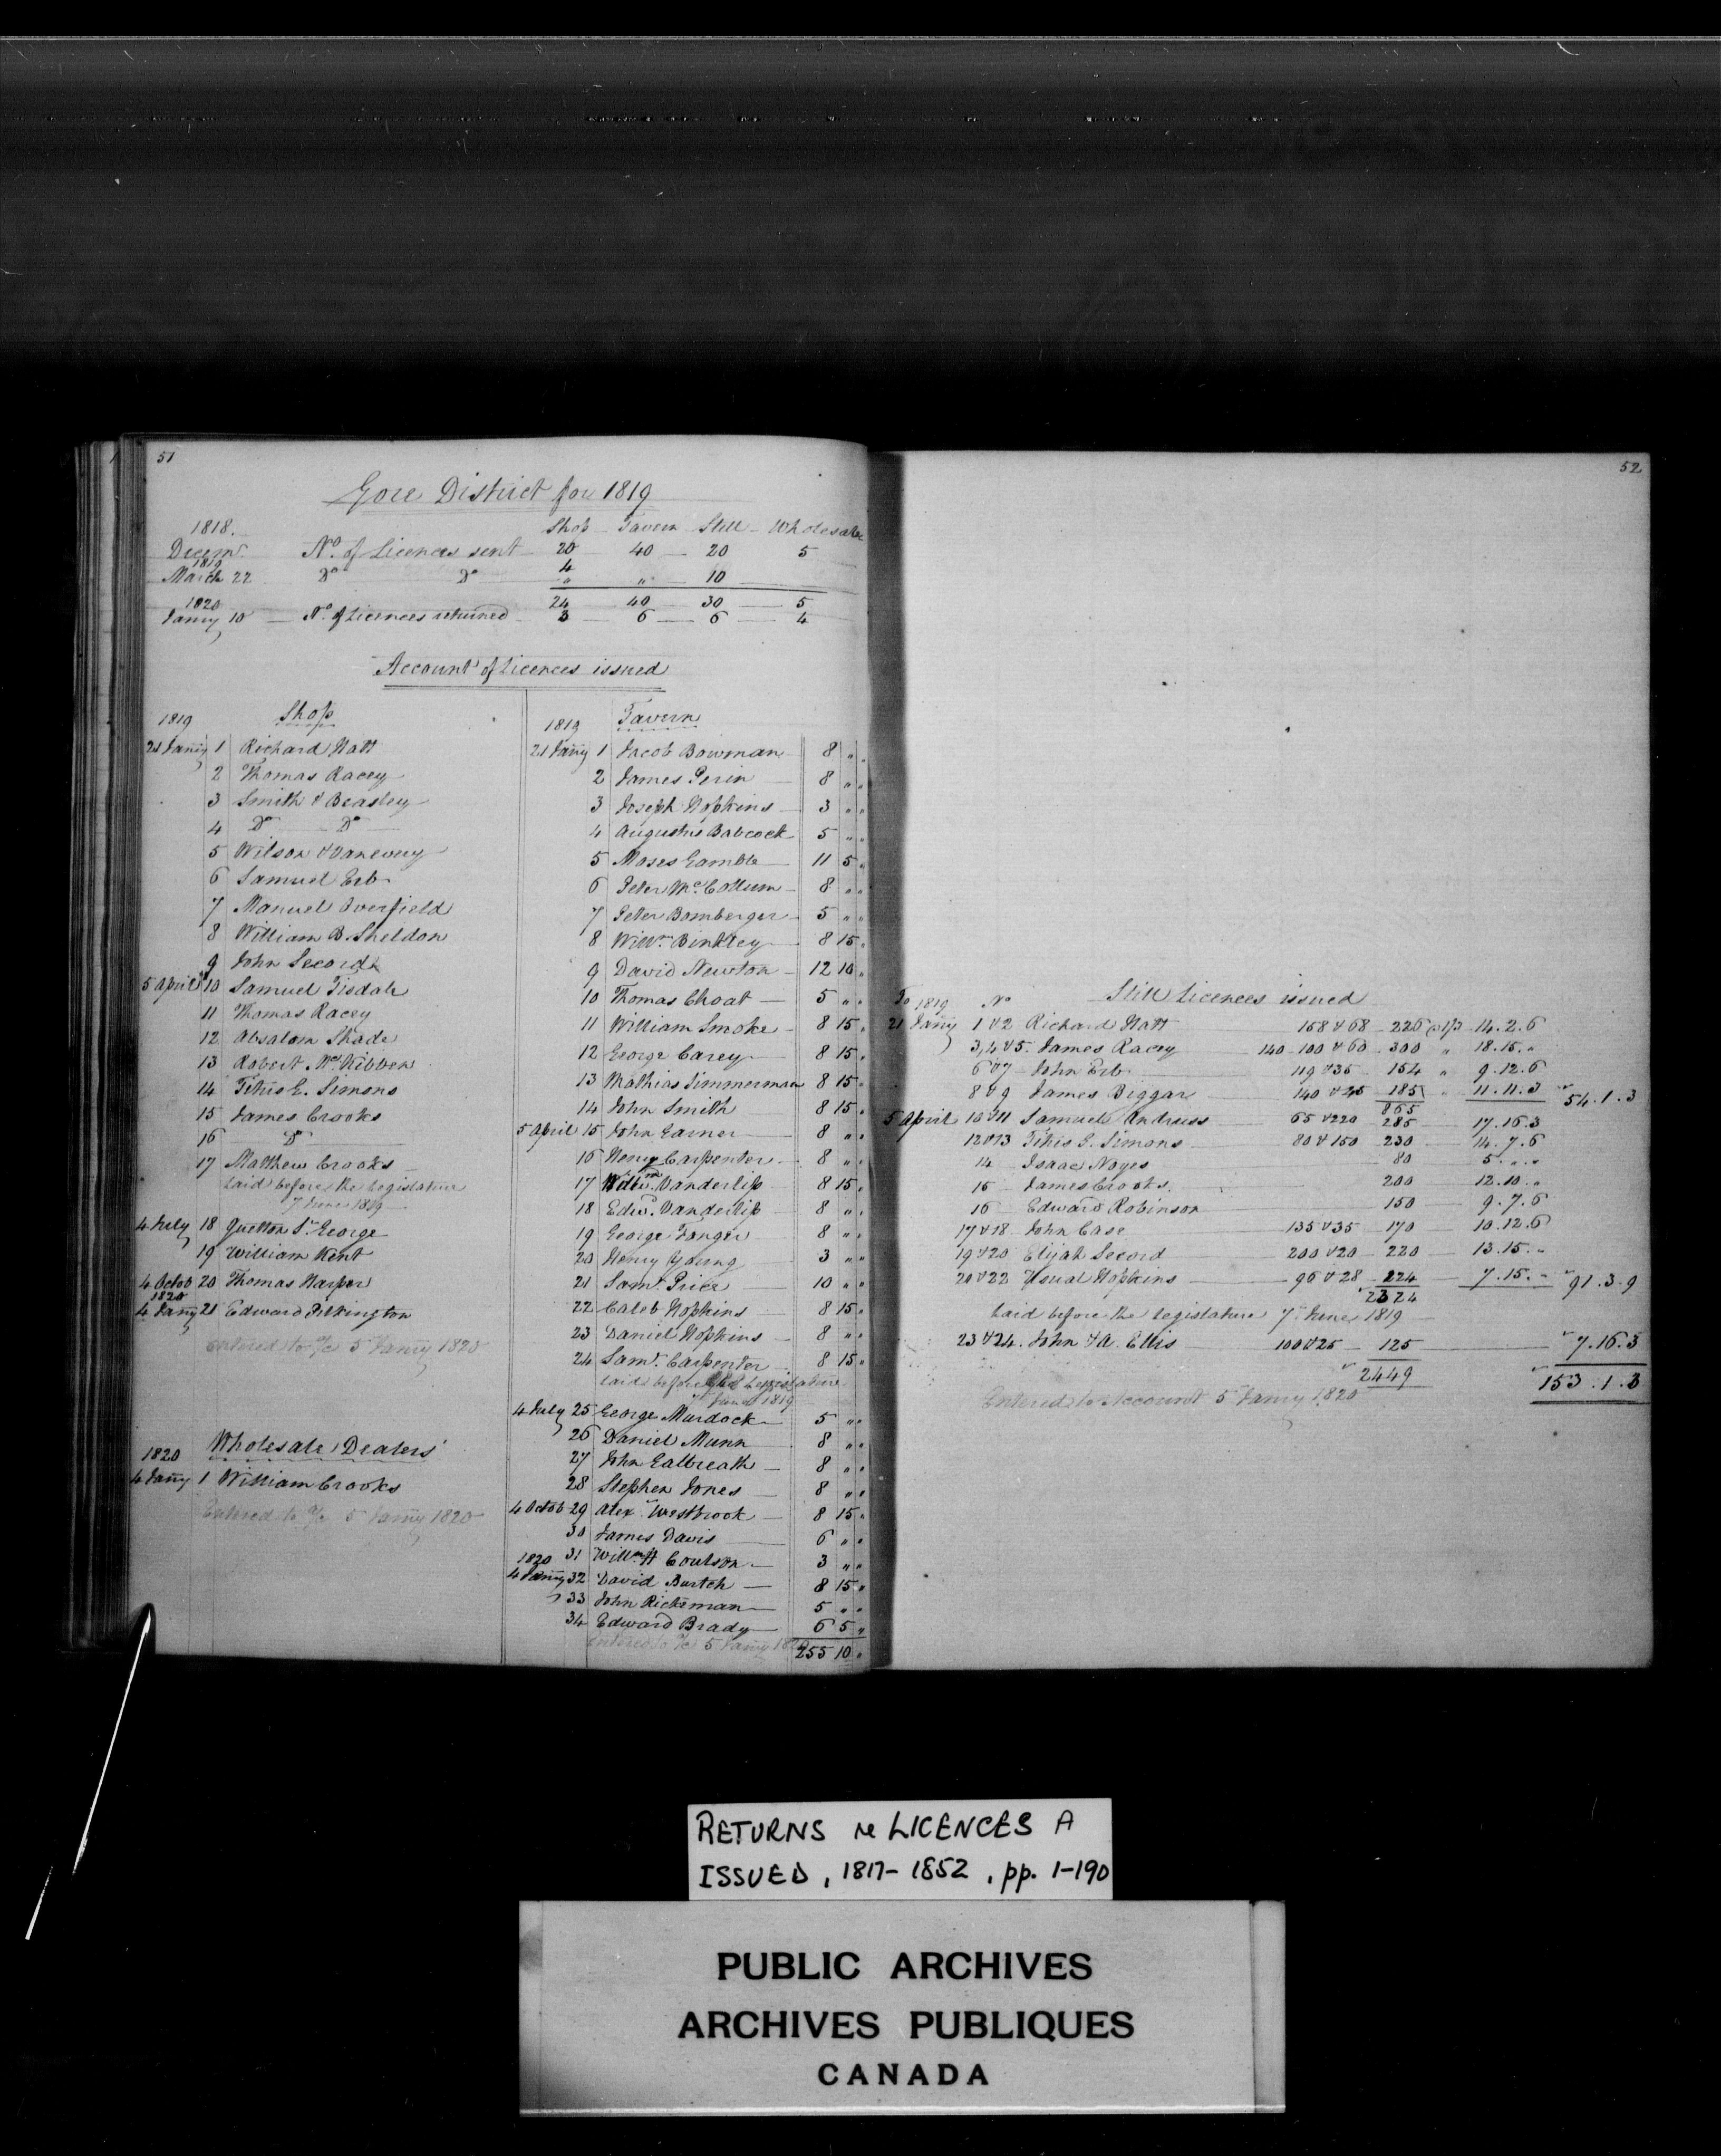 51
Gore District for 1819
Shop Tavern Still Wholesale
1818.
Decemr. No. of Licences sent 20 40 20 5
1819
March 22 Do Do 4 " 10
24 40 30 5
1820
Jany 10 No. of Licences returned 3 6 6 4
Account of Licences issued
1819 Shop
21 Jany 1 Richard Hatt
2 Thomas Racey
3 Smith & Beasley
4 Do Do
5 Wilson & Vanevery
6 Samuel Erb
7 Manuel Overfield
8 William B. Sheldon
9 John Secord
5 April 10 Samuel Tisdale
11 Thomas Racey
12 Absalom Shade
13 Robert McKibben
14 Titus G. Simons
15 James Crooks
16 Do
17 Matthew Crooks
Laid before the Legislature
7 June 1819
4 July 18 Quetton St. George
19 William Kent
4 Octob 20 Thomas Harper
1820
4 Jany 21 Edward Pilkington
Entered to a/c 5 Jany 1820
Wholesale Dealers
1820
4 Jany 1 William Crooks
Entered to a/c 5 Jany 1820
1819 Tavern
21 Jany 1 Jacob Bowman 8 " "
2 James Perin 8 " "
3 Joseph Hopkins 3 " "
4 Augustus Babcock 5 " "
5 Moses Gamble 11 5 "
6 Peter McCollum 8 " "
7 Peter Bomberger 5 " "
8 Willm. Binkley 8 15 "
9 David Newton 12 10 "
10 Thomas Choat 5 " "
11 William Smoke 8 15 "
12 George Carey 8 15 "
13 Mathias Simmerman 8 15 "
14 John Smith 8 15 "
5 April 15 John Garner 8 " "
16 Henry Carpenter 8 " "
17 Vanderlip 8 15 "
18 Edwd. Vanderlip 8 " "
19 George Fonger 8 " "
20 Henry Young 3 " "
21 Saml. Price 10 " "
22 Caleb Hopkins 8 15 "
23 Daniel Hopkins 8 " "
24 Saml. Carpenter 8 15 "
Laid before the Legislature
7 June 1819
4 July 25 George Murdock 5 " "
26 Daniel Munn 8 " "
27 John Galbreath 8 " "
28 Stephen Jones 8 " "
4 Octob 29 Alexr. Westbrook 8 15 "
30 James Davis 6 " "
31 Willm. H Coulson 3 " "
1820
4 Jany 32 David Burtch 8 15 "
33 John Rickman 5 " "
34 Edward Brady 6 5 "
Entered to a/c 5 Jany 1820
255 10 "
52
To 1819 No Still Licences issued
21 Jany 1 & 2 Richard Hatt 158 & 68 226 @ 1/3 14.2.6
3,4 & 5. James Racey 140 100 & 60 300 " 18.15."
6 & 7 John Erb 119 & 35 154 " 9.12.6
8 & 9 James Biggar 140 & 45 185 " 11.11.3 54.1.3
865
5 April 10 & 11 Samuel Andruss 65 & 220 285 17.16.3
12 & 13 Titus G. Simons 80 & 150 230 14.7.6
14 Isaac Noyes 80 5."."
15 James Crooks. 200 12.10."
16 Edward Robinson 150 9.7.6
17 & 18 John Case 135 & 35 170 10.12.6
19 & 20 Elijah Secord 200 & 20 220 13.15."
20 & 22 Usual Hopkins 96 & 28 124 7.15.- 91.3.9
2324
Laid before the Legislature 7 June 1819
23 & 24. John & A. Ellis 100 & 25 125 7.16.3
2449 153.1.3
Entered to Account 5 Jany 1820
RETURNS re LICENCES A
ISSUED, 1817-1852, pp. 1-190
PUBLIC ARCHIVES
ARCHIVES PUBLIQUES
CANADA